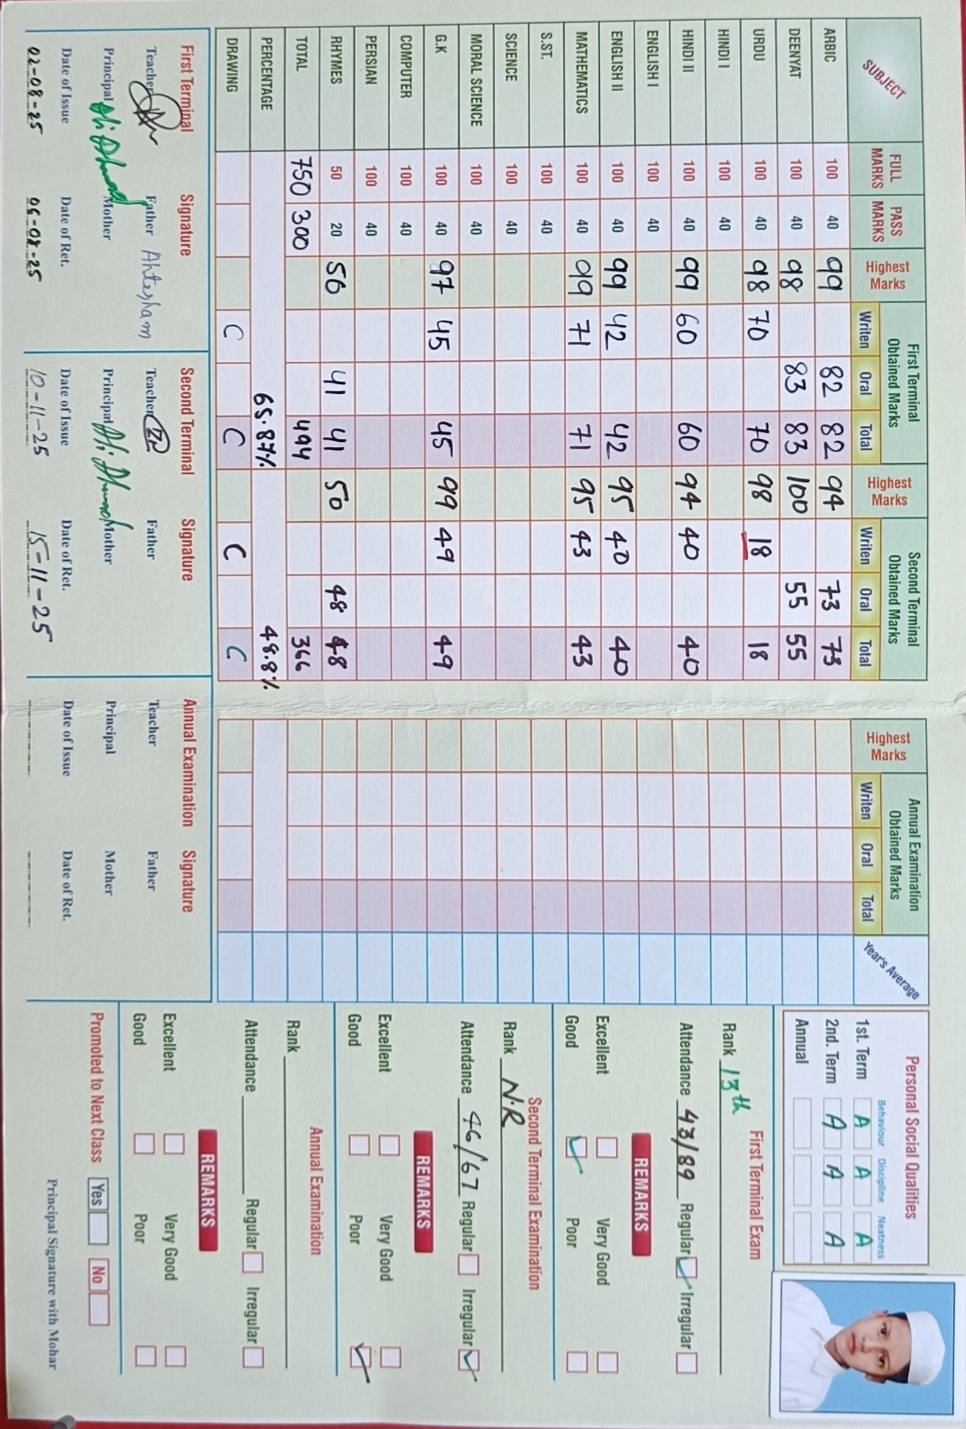 SUBJECT FULL MARKS PASS MARKS Highest Marks First Terminal Obtained Marks Writen Oral Total Highest Marks Second Terminal Obtained Marks Writen Oral Total Highest Marks Annual Examination Obtained Marks Writen Oral Total Year's Average
ARBIC 100 40 99 82 82 94 73 73
DEENYAT 100 40 98 83 83 100 55 55
URDU 100 40 98 70 70 98 18 18
HINDI I 100 40
HINDI II 100 40 99 60 60 94 40 40
ENGLISH I 100 40
ENGLISH II 100 40 99 42 42 95 40 40
MATHEMATICS 100 40 99 71 71 95 43 43
S.ST. 100 40
SCIENCE 100 40
MORAL SCIENCE 100 40
G.K 100 40 97 45 45 99 49 49
COMPUTER 100 40
PERSIAN 100 40
RHYMES 50 20 56 41 41 50 48 48
TOTAL 750 300 494 366
PERCENTAGE 65.87% 48.8%
DRAWING C C C C
First Terminal Signature
Teacher Father Ahtesham
Principal Mother
Date of Issue Date of Ret.
02-08-25 06-08-25
Second Terminal Signature
Teacher Father
Principal Mother
Date of Issue Date of Ret.
10-11-25 15-11-25
Annual Examination Signature
Teacher Father
Principal Mother
Date of Issue Date of Ret.
Personal Social Qualities
Behaviour Discipline Neatness
1st. Term A A A
2nd. Term A A A
Annual
First Terminal Exam
Rank 13th
Attendance 43/89 Regular Irregular
REMARKS
Excellent Very Good
Good Poor
Second Terminal Examination
Rank N.R
Attendance 46/67 Regular Irregular
REMARKS
Excellent Very Good
Good Poor
Annual Examination
Rank
Attendance Regular Irregular
REMARKS
Excellent Very Good
Good Poor
Promoted to Next Class Yes No
Principal Signature with Mohar